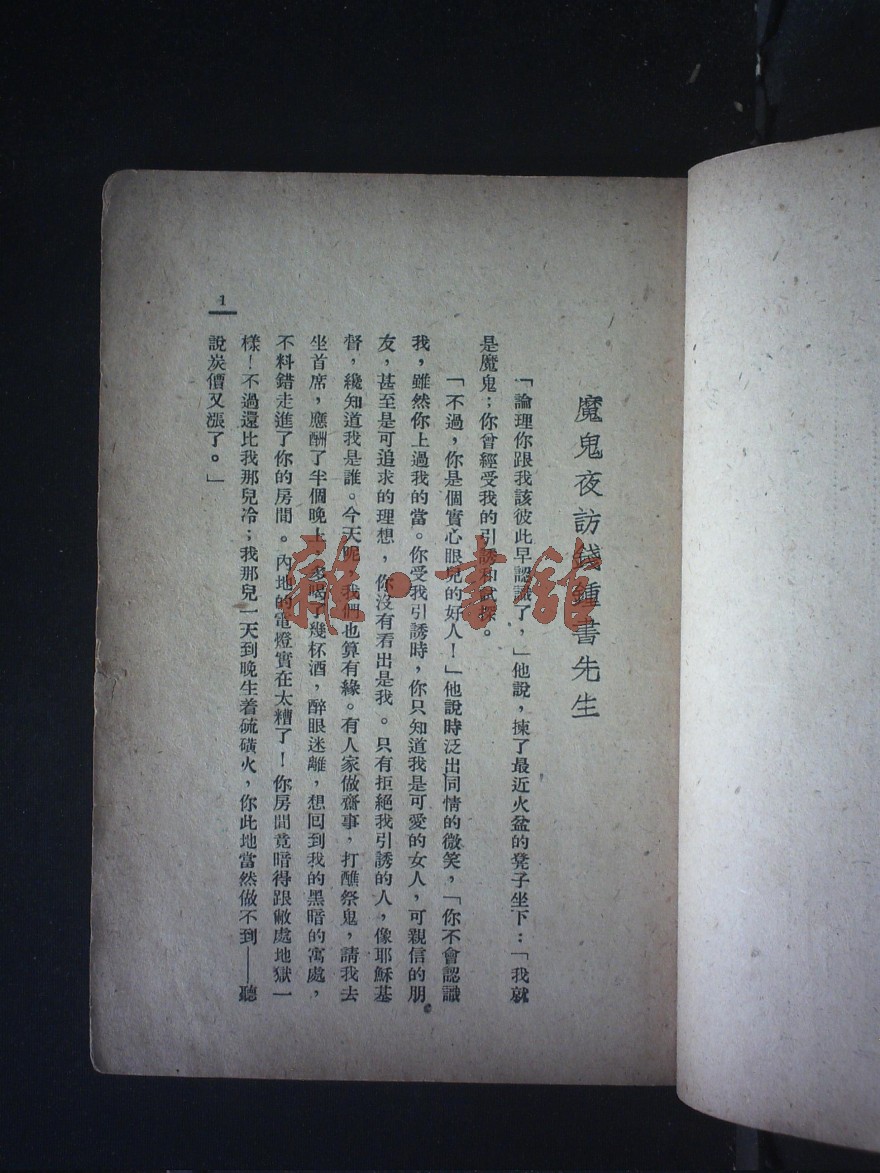 魔鬼夜訪錢鍾書先生
「論理你跟我該彼此早認識了，」他說，揀了最近火盆的凳子坐下：「我就
是魔鬼；你曾經受我的引誘和試探。
「不過，你是個實心眼兒的好人！」他說時泛出同情的微笑，「你不會認識
我，雖然你上過我的當。你受我引誘時，你只知道我是可愛的女人，可親信的朋
友，甚至是可追求的理想，你沒有看出是我。只有拒絕我引誘的人，像耶穌基
督，纔知道我是誰。今天呢，我們也算有緣。有人家做齋事，打醮祭鬼，請我去
坐首席，應酬了半個晚上，多喝了幾杯酒，醉眼迷離，想回到我的黑暗的寓處，
不料錯走進了你的房間。內地的電燈實在太糟了！你房間竟暗得跟敝處地獄一
樣！不過還比我那兒冷；我那兒一天到晚生着硫磺火，你此地當然做不到——聽
說炭價又漲了。」
1
雜·書館